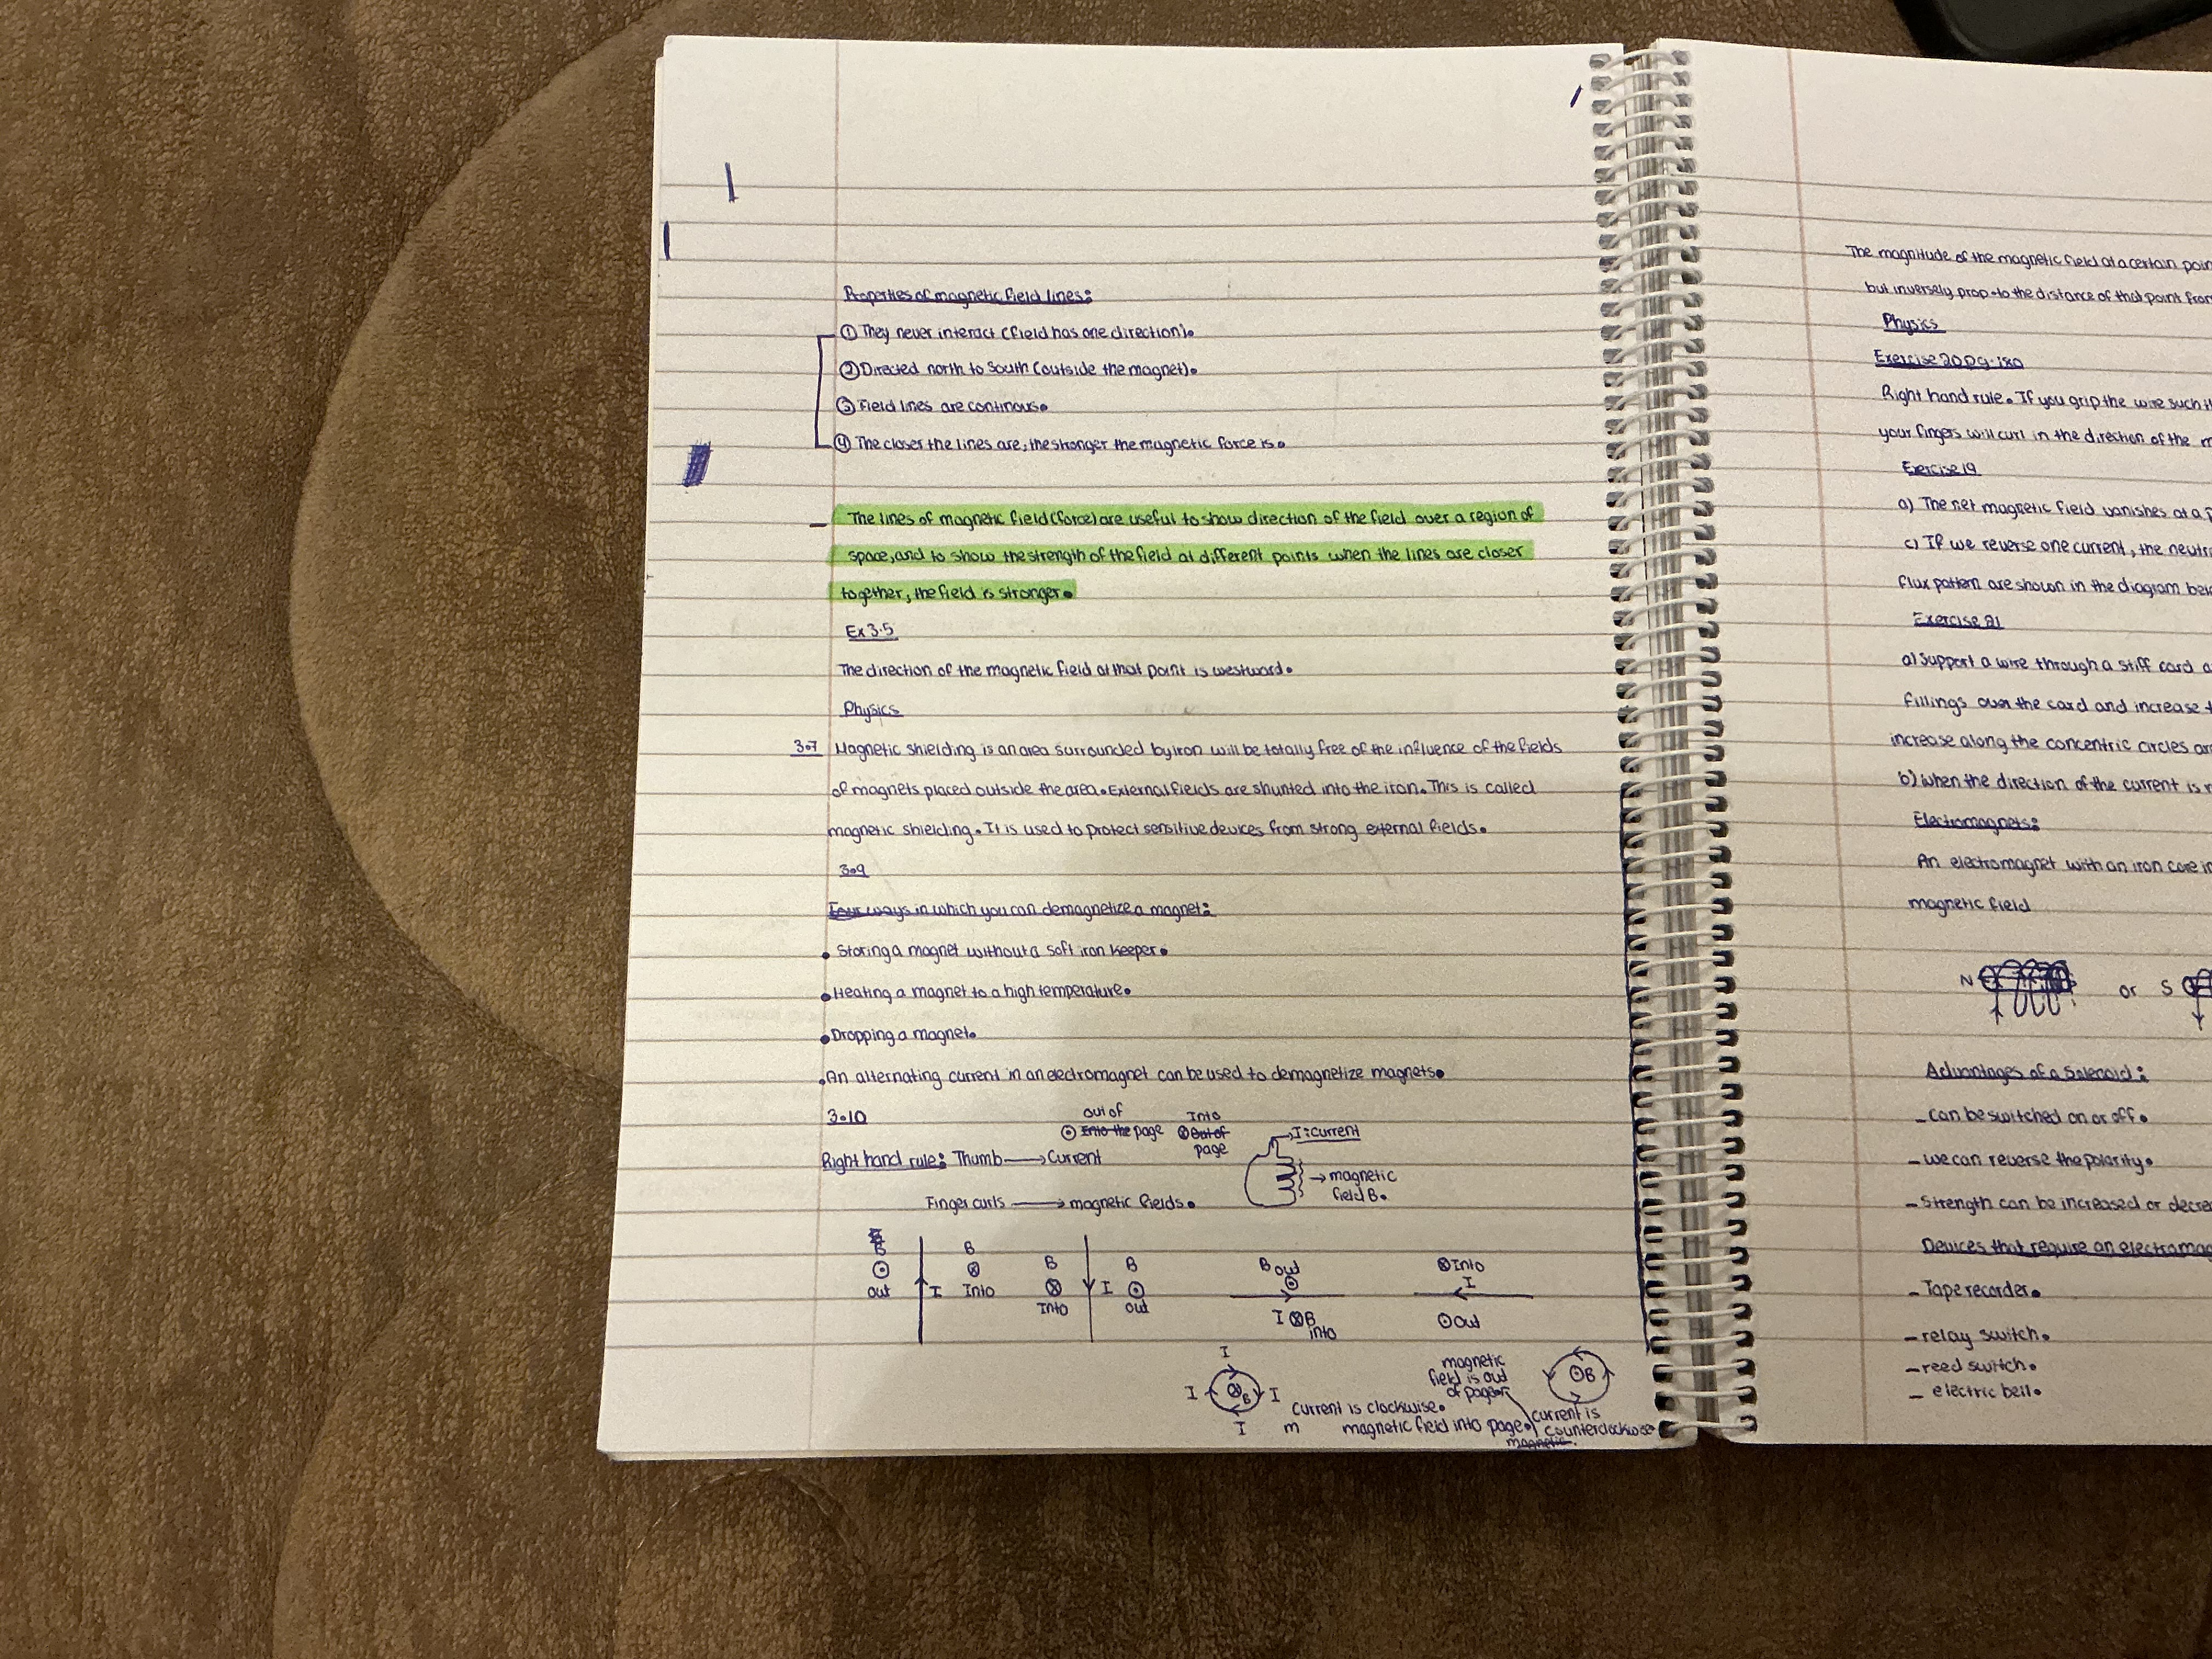 Properties of magnetic field lines:
① They never interact (field has one direction).
② Directed north to South (outside the magnet).
③ Field lines are continous.
④ The closer the lines are, the stronger the magnetic force is.
– The lines of magnetic field (force) are useful to show direction of the field over a region of
space, and to show the strength of the field at different points when the lines are closer
together, the field is stronger.
Ex 3.5
The direction of the magnetic field at that point is westward.
Physics
3.7 Magnetic shielding is an area surrounded by iron will be totally free of the influence of the fields
of magnets placed outside the area. External fields are shunted into the iron. This is called
magnetic shielding. It is used to protect sensitive devices from strong external fields.
3.9
Four ways in which you can demagnetize a magnet:
• Storing a magnet without a soft iron keeper.
• Heating a magnet to a high temperature.
• Dropping a magnet.
• An alternating current in an electromagnet can be used to demagnetize magnets.
3.10
out of Into
⊙ Into the page ⊗ Out of
page
I: current
Right hand rule: Thumb → Current
→ magnetic
field B.
Finger curls → magnetic fields.
B B B B B out ⊗ Into
⊙ ⊗ ⊗ ⊙ ⊙ I
out I Into Into I out
I ⊗ B
into
⊙ out
I
I ⊗ B I
I
Current is clockwise.
m magnetic field into page.
magnetic
field is out
of page.
⊙ B
current is
counterclockwise
magnetic.
The magnitude of the magnetic field at a certain poin
but inversely prop. to the distance of that point from
Physics
Exercise 20 Pg. 180
Right hand rule. If you grip the wire such th
your fingers will curl in the direction of the m
Exercise 19
a) The net magnetic field vanishes at a p
c) If we reverse one current, the neutr
flux pattern are shown in the diagram belo
Exercise 21
a) Support a wire through a stiff card a
fillings over the card and increase t
increase along the concentric circles ar
b) when the direction of the current is r
Electromagnets:
An electromagnet with an iron core in
magnetic field
N or S
Advantages of a Solenoid:
– Can be switched on or off.
– we can reverse the polarity.
– Strength can be increased or decre
Devices that require an electromag
– Tape recorder.
– relay switch.
– reed switch.
– electric bell.